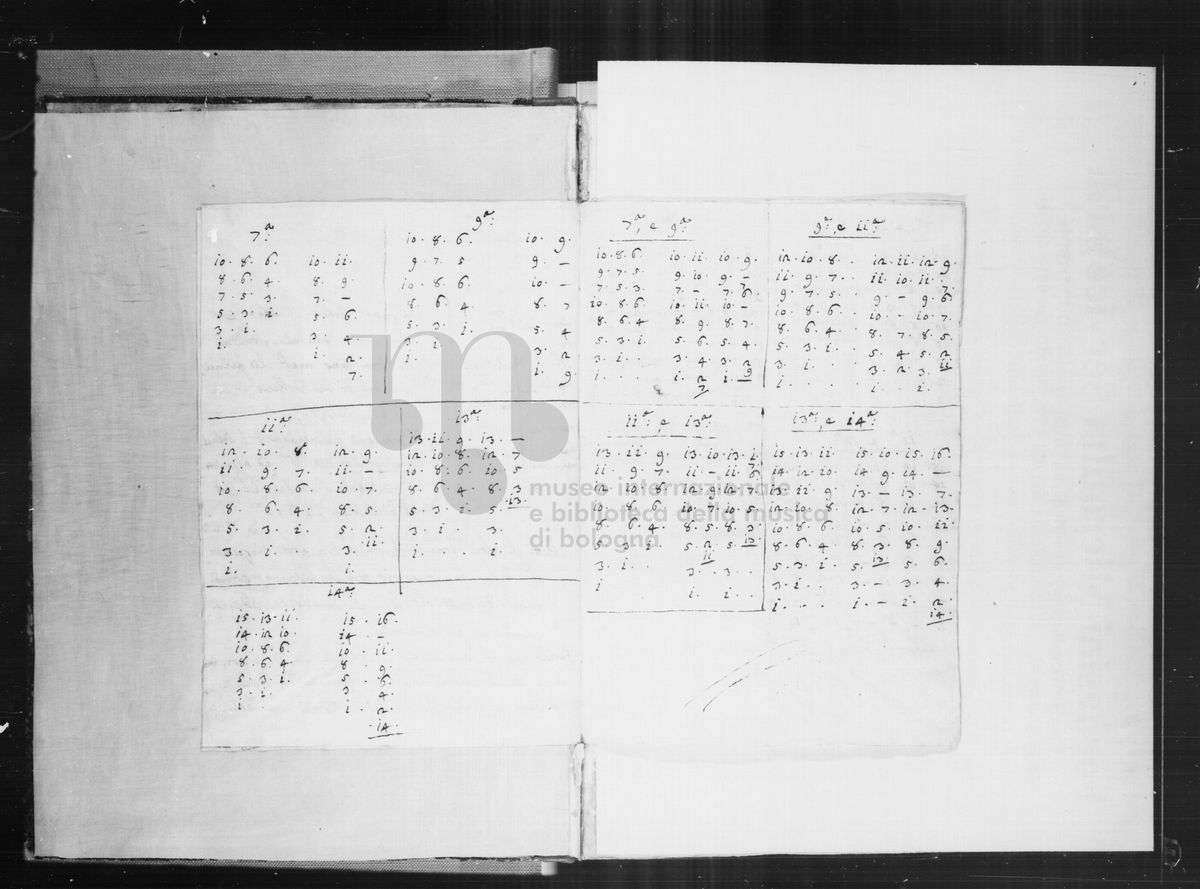 7ª:
10. 8. 6. 10. 11.
8. 6. 4. 8. 9.
7. 5. 3. 7. –
5. 3. 1. 5. 6.
3. 1. 3. 4.
1. 1. 2.
7.
9ª:
10. 8. 6. 10. 9.
9. 7. 5 9. –
10. 8. 6. 10. –
8. 6. 4 8. 7
5. 3. 1. 5. 4
3. 1. 3. 2
1. 1. 9.
11ª:
12. 10. 8. 12. 9.
11. 9. 7. 11. –
10. 8. 6. 10. 7.
8. 6. 4. 8. 5.
5. 3. 1. 5. 2.
3. 1. 3. 11.
1. 1.
13ª:
13. 11. 9. 13. –
12. 10. 8. 12. 7
10. 8. 6. 10. 5
8. 6. 4. 8. 3
5. 3. 1. 5. 13.
3. 1. 3.
1. . . 1.
14ª:
15. 13. 11. 15. 16.
14. 12. 10. 14. –
10. 8. 6. 10. 11.
8. 6. 4. 8. 9.
5. 3. 1. 5. 6.
3. 1. 3. 4.
1. 1. 2.
14.
7ª, e 9ª:
10. 8. 6. 10. 11. 10. 9.
9. 7. 5. 9. 10. 9. –
7. 5. 3. 7. – 7. 6.
10. 8. 6. 10. 11. 10. –
8. 6. 4 8. 9. 8. 7.
5. 3. 1. 5. 6. 5. 4.
3. 1. . 3. 4. 3. 2.
1. . . 1. 2 1. 9
7
9ª, e 11ª:
12. 10. 8. . 12. 11. 12. 9.
11. 9. 7. . 11. 10. 11.
9. 7. 5. . 9. – 9. 6.
10. 8. 6. . 10. – 10. 7.
8. 6. 4. . 8. 7. 8. 5.
5. 3. 1. . 5. 4. 5. 2
3. 1. . . 3. 2. 3. 11
1. . . . 1. . 1.
11ª, e 13ª:
13. 11. 9. 13. 10. 13. 1.
11. 9. 7. 11. – 11. 6.
12. 10. 8 12. 9. 12. 7
10. 8. 6 10. 7. 10. 5
8. 6. 4. 8. 5. 8. 3.
5. 3. 1. 5. 2. 5. 13.
3. 1. . 3. 11 . 3.
1 1. . 1.
13ª, e 14ª:
15. 13. 11 15. 10. 15. 16.
14. 12. 10 14. 9. 14. –
13. 11. 9 13. – 13. 7.
12. 10. 8 12. 7. 12. 13.
10. 8. 6 10. 5. 10. 11.
8. 6. 4 8. 3. 8. 9.
5. 3. 1. 5. 13. 5. 6.
3. 1. . 3. – 3. 4.
1. . . 1. – 1. 2.
14.
museo internazionale
e biblioteca della musica
di bologna